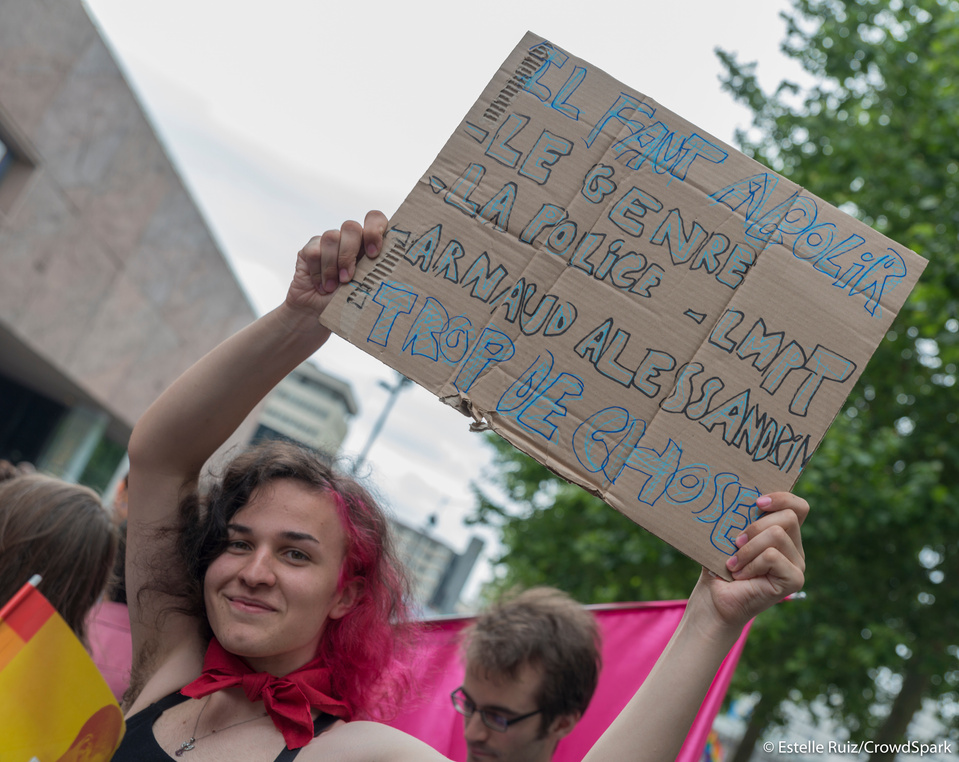 IL FANT ABOLIR
- LE GENRE
- LA POLICE - LMPT
- ARNAUD ALESSANDRIN
TROP DE CHOSES
© Estelle Ruiz/CrowdSpark